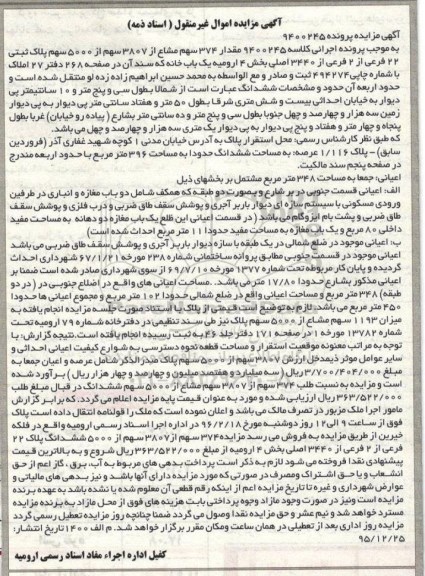 آگهی مزایده اموال غیرمنقول ( اسناد ذمه)
آگهی مزایده پرونده ۹۴۰۰۲۴۵
به موجب پرونده اجرائی کلاسه ۹۴۰۰۲۴۵ مقدار ۳۷۴ سهم مشاع از ۳۸۰۷ سهم از ۵۰۰۰ سهم پلاک ثبتی
۲۲ فرعی از ۲ فرعی از ۳۴۴۰ اصلی بخش ۴ ارومیه یک باب خانه که سند آن در صفحه ۲۶۸ دفتر ۲۷ املاک
با شماره چاپی ۴۹۴۲۷۴ ثبت و صادر و مع الواسطه به محمد حسین ابراهیم زاده زده لو منتقل شده است و
حدود اربعه آن حدود و مشخصات ششدانگ عبارت است از شمالا بطول سی و پنج متر و ۱۰ سانتیمتر پی
دیوار به خیابان احداثی بیست و شش متری شرقا بطول ۵۰ متر و هفتاد سانتی متر پی دیوار به پی دیوار
زمین سه هزار و چهارصد و چهل جنوبا بطول سی و پنج متر و ده سانتی متر بشارع ( پیاده رو خیابان) غربا بطول
پنجاه و چهار متر و هفتاد و پنج پی دیوار به پی دیوار یک متری سه هزار و چهارصد و چهل می باشد.
که طبق نظر کارشناس رسمی: محل استقرار پلاک به آدرس خیابان مدنی ۱ کوچه شهید غفاری آذر (فروردین
سابق) – پلاک ۱/۱۱۶ عرصه: به مساحت ششدانگ حدودا به مساحت ۳۹۶ متر مربع با حدود اربعه مندرج
در صفحه پنجم سند مالکیت.
اعیانی: جمعا به مساحت ۳۴۸ متر مربع مشتمل بر بخشهای ذیل
الف: اعیانی قسمت جنوبی در بر شارع و بصورت دو طبقه که همکف شامل دو باب مغازه و انباری در طرفین
ورودی مسکونی با سیستم سازه ای دیوار باربر آجری و پوشش سقف طاق ضربی و درب فلزی و پوشش سقف
طاق ضربی و پشت بام ایزوگام می باشد ( در قسمت اعیانی این ظلع یک باب مغازه دو دهانه به مساحت مفید
داخلی ۸۰ مربع و یک باب مغازه به مساحت مفید حدودا ۱۱ متر مربع احداث شده است)
ب: اعیانی موجود در ضلع شمالی در یک طبقه با سازه دیوار باربر آجری و پوشش سقف طاق ضربی می باشد
اعیانی موجود در قسمت جنوبی مطابق پروانه ساختمانی شماره ۲۳۸ مورخه ۶۷/۱/۲۱ شهرداری احداث
گردیده و پایان کار مربوطه تحت شماره ۱۳۷۷ مورخه ۶۹/۷/۱۰ از سوی شهرداری صادر شده است ضمنا بر
اعیانی مذکور بشارع حدودا ۱۷/۸۰ متر می باشد.. مساحت اعیانی های واقع در اضلاع جنوبی در ( در دو
طبقه) ۳۴۸ متر مربع و مساحت اعیانی واقع در ضلع شمالی حدودا ۱۰۲ متر مربع و مجموع اعیانی ها حدودا
۴۵۰ متر مربع می باشد: لازم به توضیح است قسمتی از پلاک با استناد صورت جلسه مزایده انجام یافته به
میزان ۱۱۹۳ سهم مشاع از ۵۰۰۰ سهم پلاک نیز طی سند تنظیمی در دفترخانه شماره ۷۹ ارومیه تحت
شماره ۱۳۷۸۲ مورخه ۱ در صفحه ۱۷۱ دفتر جلد ۴۶ به ثبت رسیده و انجام یافته است. نتیجه گزارش: با
توجه به مراتب معنونه موقعیت استقرار و مساحت قطعه نحوه دسترسی به شوارع کیفیت اعیانی احداثی و
سایر عوامل موثر ذیمدخل ارزش ۳۸۰۷ سهم از ۵۰۰۰ سهم پلاک صدر الذکر شامل عرصه و اعیان جمعا به
مبلغ ۳/۷۰۰/۴۰۴/۰۰۰ ریال ( سه میلیارد و هفتصد میلیون و چهارصد و چهار هزار ریال) برآورد شده
است و مزایده به نسبت طلب ۳۷۴ سهم از ۳۸۰۷ سهم مشاع از ۵۰۰۰ سهم ششدانگ در قبال مبلغ طلب
۳۶۳/۵۲۲/۰۰۰ ریال ارزیابی شده و مورد به عنوان قیمت پایه مزایده اعلام می گردد. که برابر گزارش
مامور اجرا ملک مزبور در تصرف مالک می باشد و اعلان نموده است که ملک را قولنامه انتقال داده است پلاک
فوق از ساعت ۹ الی ۱۲ روز دوشنبه مورخ ۹۶/۲/۱۸ در اداره اجرا اسناد رسمی ارومیه واقع در فلکه
خیرین از طریق مزایده به فروش می رسد مزایده ۳۷۴ سهم از ۳۸۰۷ سهم از ۵۰۰۰ ششدانگ پلاک ۲۲
فرعی از ۲ فرعی از ۳۴۴۰ اصلی بخش ۴ ارومیه از مبلغ ۳۶۳/۵۲۲/۰۰۰ ریال شروع و به بالاترین قیمت
پیشنهادی نقدا فروخته می شود لازم به ذکر است پرداخت بدهی های مربوط به آب، برق، گاز اعم از حق
انشعاب و یا حق اشتراک و مصرف در صورتی که مورد مزایده دارای آنها باشد و نیز بدهی های مالیاتی و
عوارض شهرداری و غیره تا تاریخ مزایده اعم از اینکه رقم قطعی آن معلوم شده یا نشده باشد به عهده برنده
مزایده است ونیز در صورت وجود مازاد وجوه پرداختی بابت هزینه های فوق از محل مازاد به برنده مزایده
مسترد خواهد شد و نیم عشر و حق مزایده نقدا وصول می گردد ضمنا چنانچه روز مزایده تعطیل رسمی گردد
مزایده روز اداری بعد از تعطیلی در همان ساعت ومکان مقرر برگزار خواهد شد. م الف ۱۴۰۰ تاریخ انتشار:
۹۵/۱۲/۲۵
کفیل اداره اجراء مفاد اسناد رسمی ارومیه